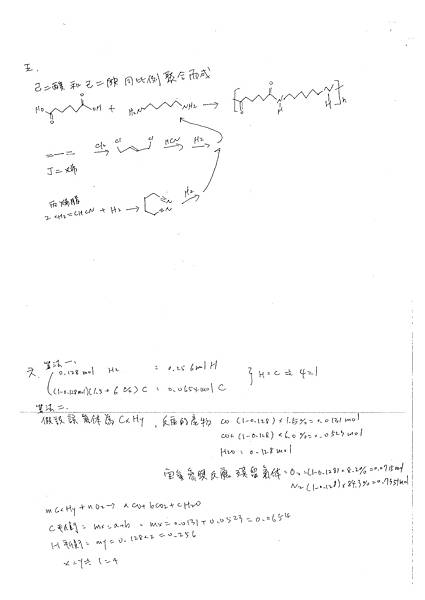 五.
己二酸和己二胺同比例聚合而成
HO OH + H2N NH2 → [ N H N H ]n
Cl2 Cl Cl HCN H2
丁二烯
丙烯腈
2 CH2=CHCN + H2 → H2
六. 算法一.
0.128 mol H2 = 0.256 mol H
(1-0.128 mol)(1.5 + 6.0%) C = 0.0654 mol C } H = C ⇒ 4=1
算法二.
假設該氣體為CxHy, 反應的產物 CO (1-0.128) × 1.5% = 0.0131 mol
CO2 (1-0.128) × 6.0% = 0.0523 mol
H2O = 0.128 mol
O2 = (1-0.128) × 8.2% = 0.0715 mol
N2 (1-0.128) × 84.3% = 0.7351 mol
m CxHy + n O2 → a CO + b CO2 + c H2O
C平衡 = mx = a+b = mx = 0.0131 + 0.0523 = 0.0654
H平衡 = my = 0.128×2 = 0.256
x=y ⇒ 1=4